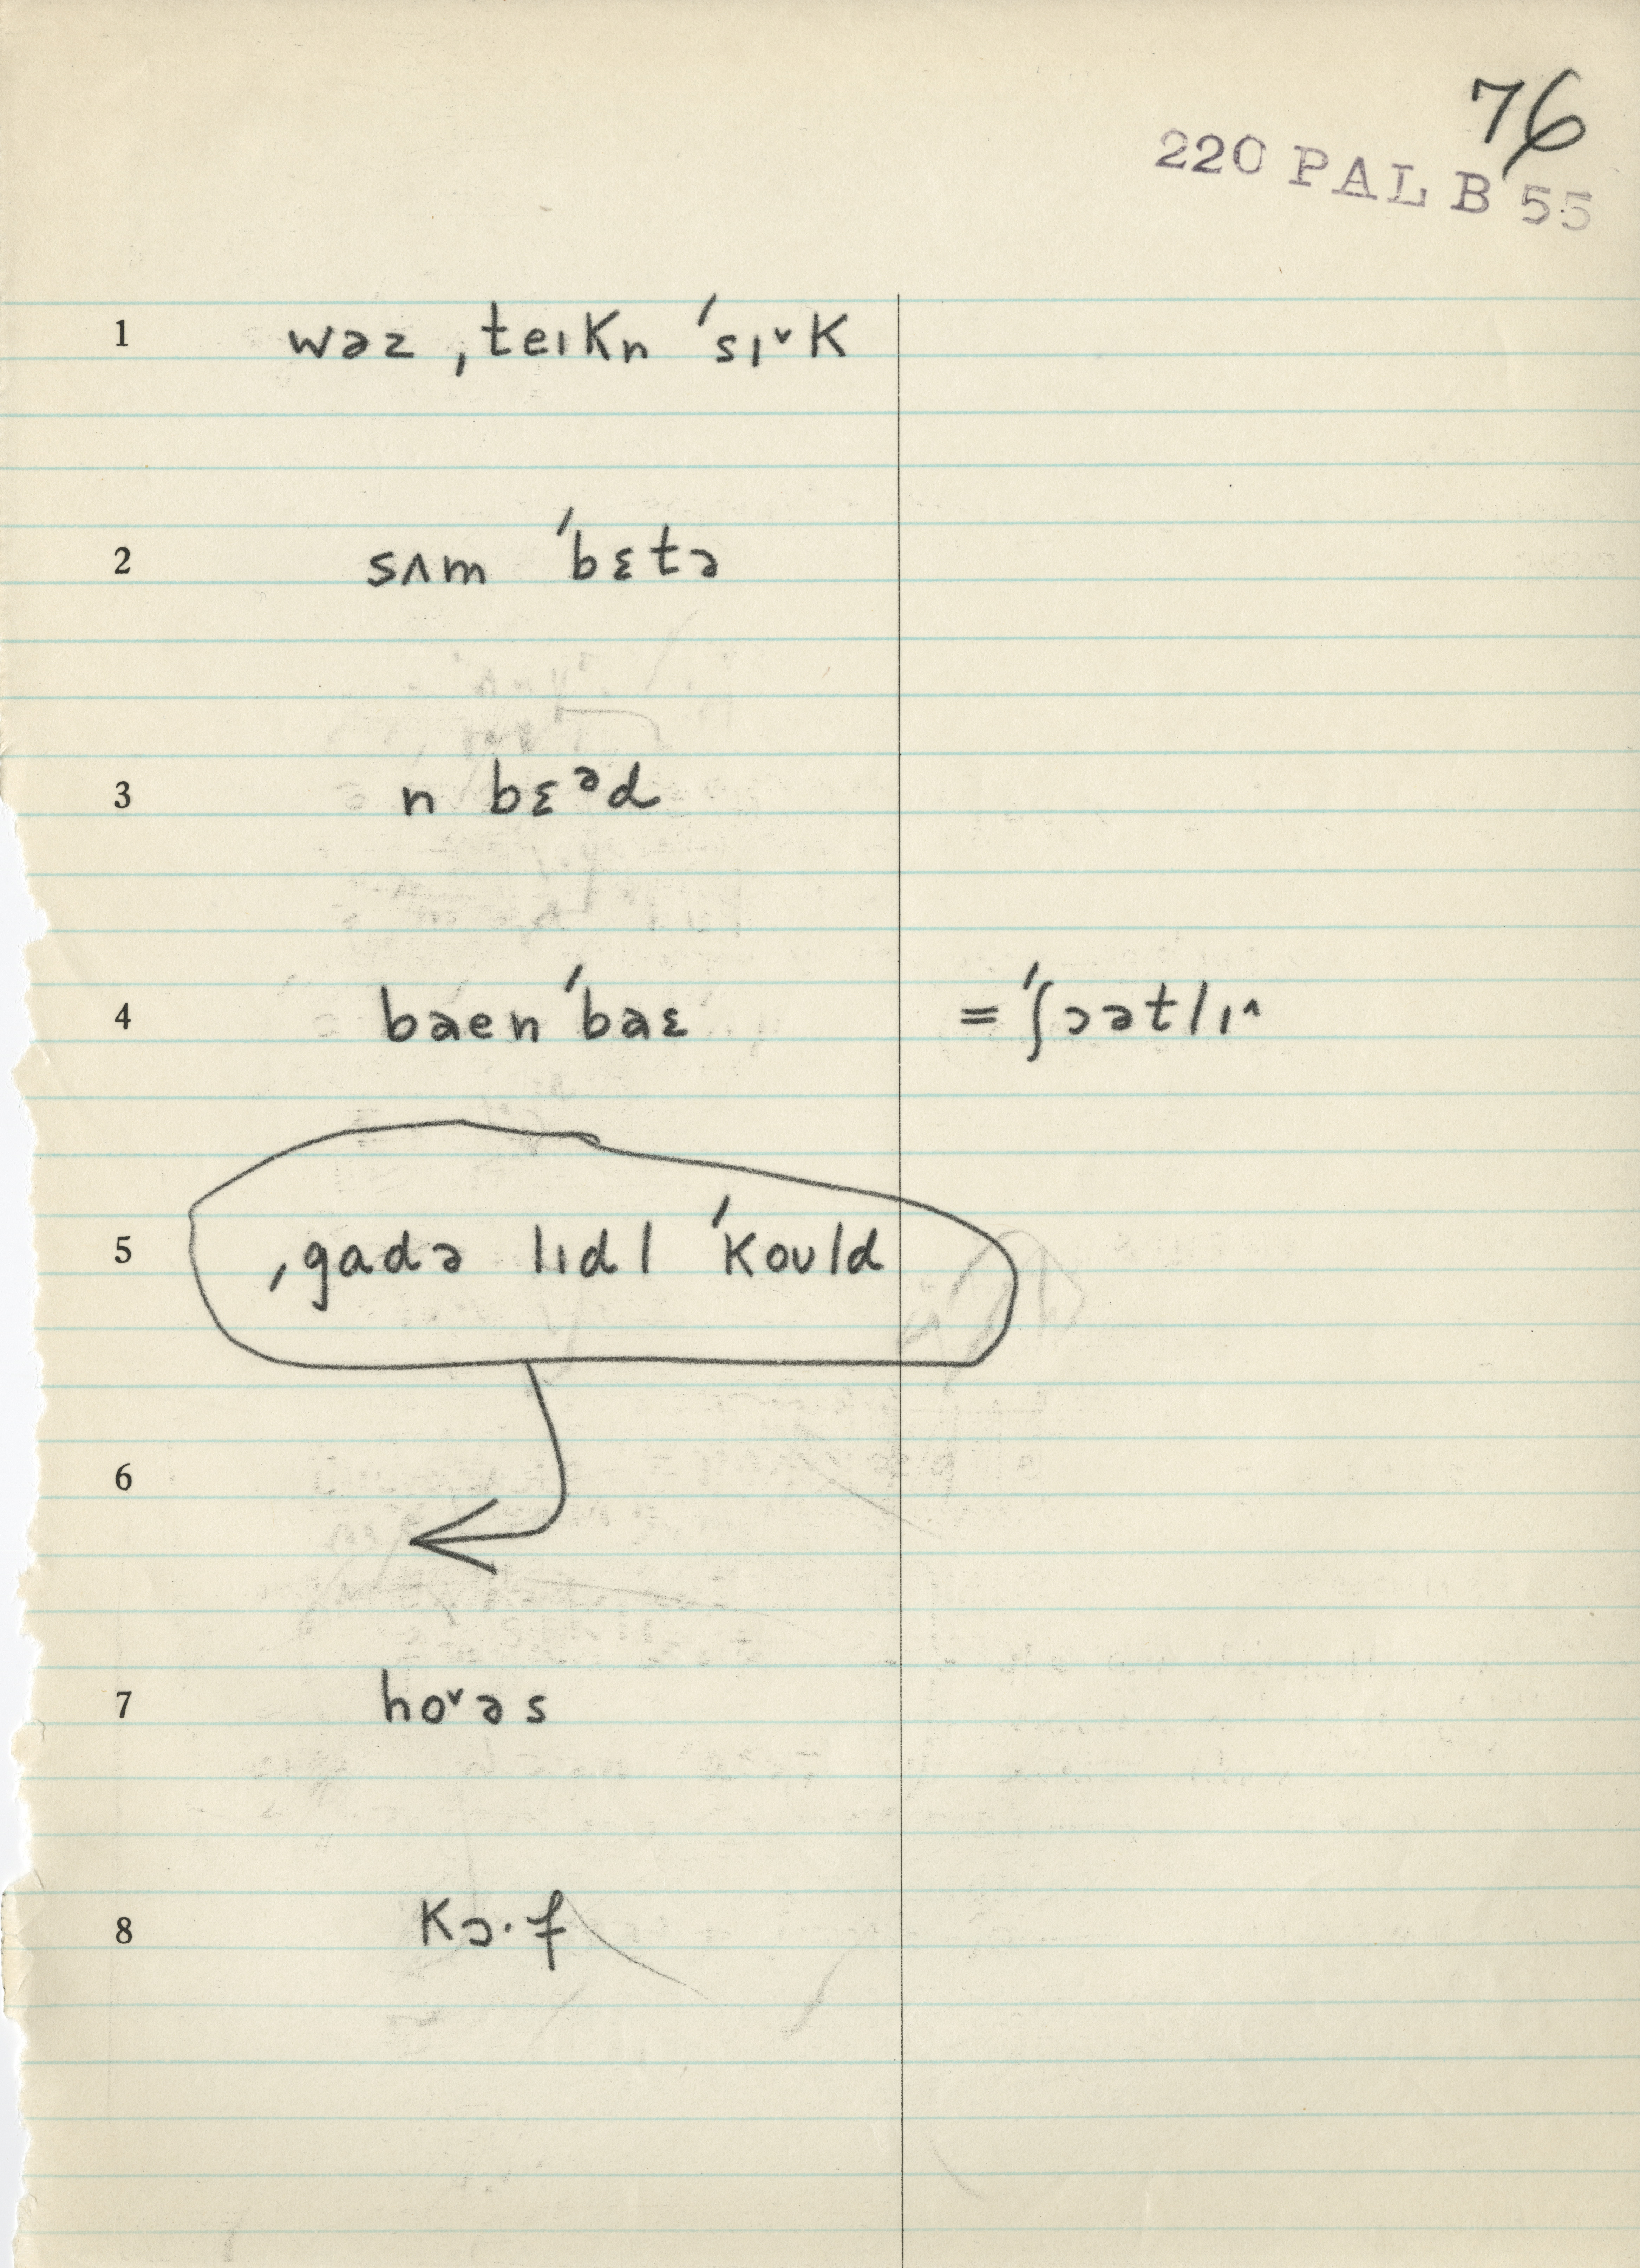 76
220 PAL B 55
1 wəz ˌteɪkn ˈsɪ˅k
2 sʌm ˈbɛtə
3 n bɛᵊd
4 baen ˈbaɛ = ˈʃɔətlɪ^
5 ˌgadə lɪdl ˈkould
6
7 ho˅əs
8 kɔ·f